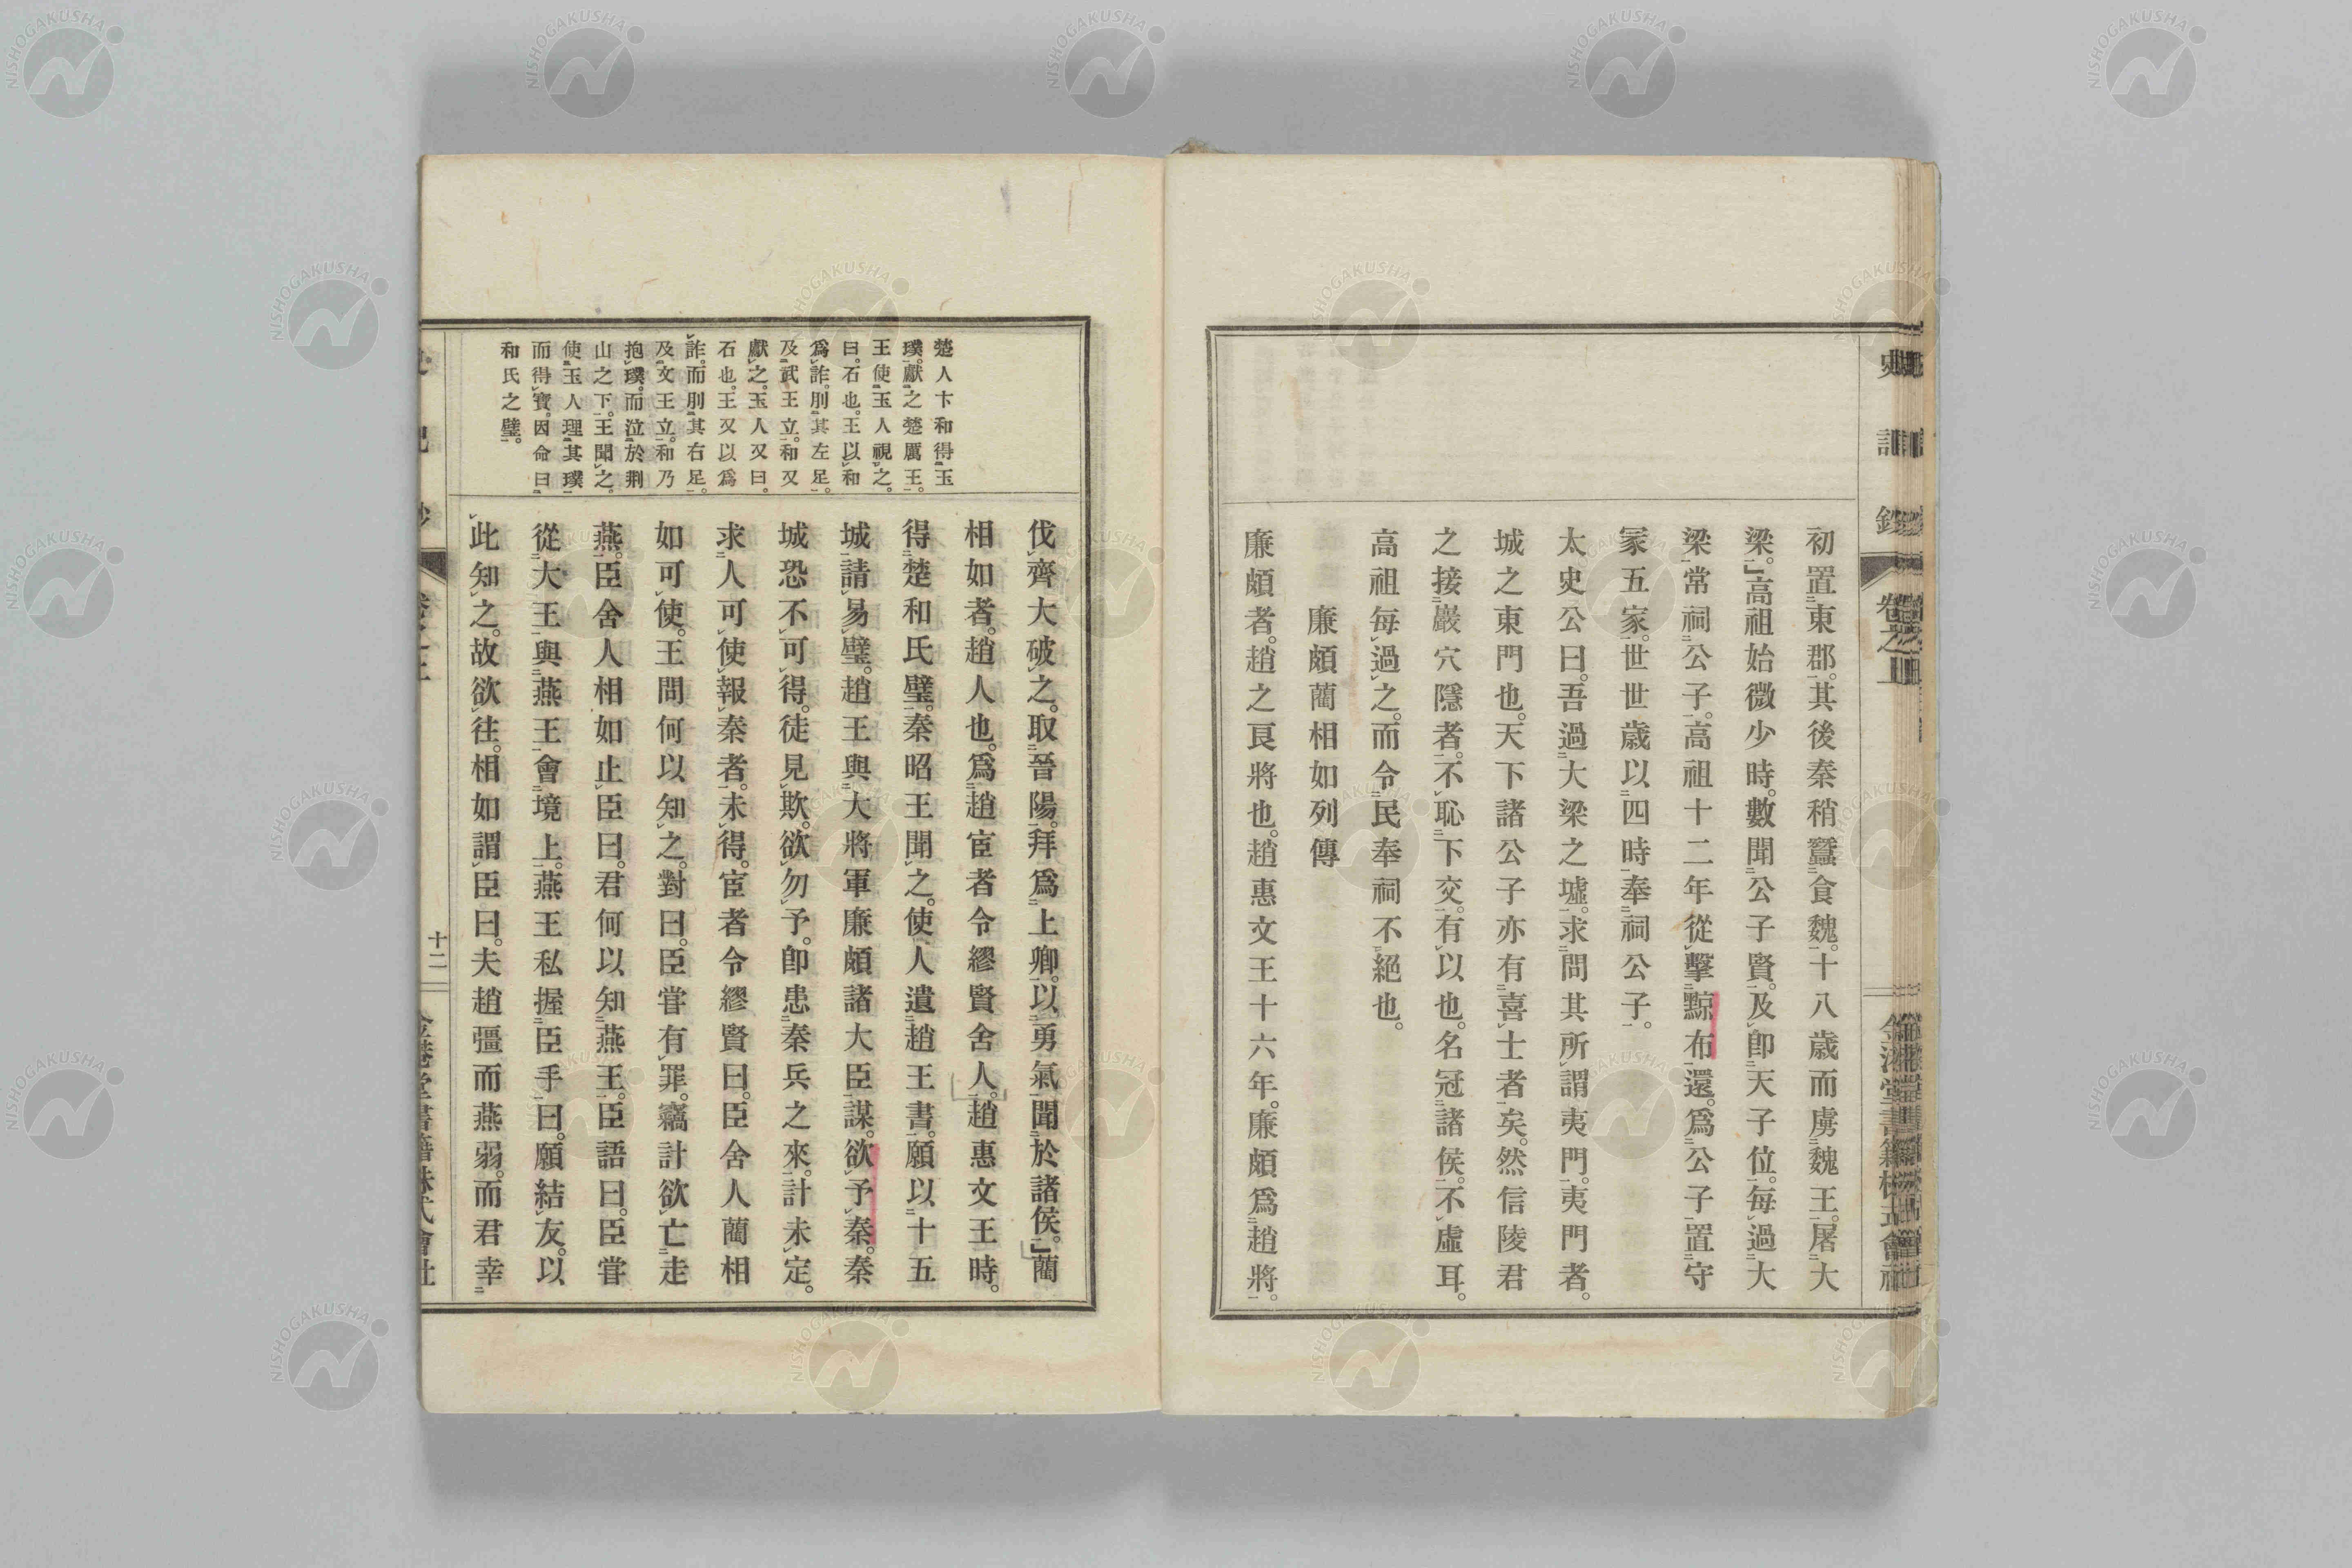 初置東郡。其後秦稍蠶食魏。十八歲而虜魏王。屠大
梁。」高祖始微少時。數聞公子賢。及卽天子位。每過大
梁常祠公子。高祖十二年從擊黥布還。爲公子置守
冢五家。世世歲以四時奉祠公子。
太史公曰。吾過大梁之墟。求問其所謂夷門。夷門者。
城之東門也。天下諸公子亦有喜士者矣。然信陵君
之接巖穴隱者。不恥下交。有以也。名冠諸侯。不虛耳。
高祖每過之。而令民奉祠不絕也。
廉頗藺相如列傳
廉頗者。趙之良將也。趙惠文王十六年。廉頗爲趙將。
楚人卞和得玉
璞。獻之楚厲王。
王使玉人視之。
曰。石也。王以和
爲詐。刖其左足。
及武王立。和又
獻之。玉人又曰。
石也。王又以爲
詐。而刖其右足。
及文王立。和乃
抱璞。而泣於荆
山之下。王聞之。
使玉人理其璞
而得寶。因命曰
和氏之璧。
伐齊大破之。取晉陽。拜爲上卿。以勇氣聞於諸侯。」藺
相如者。趙人也。爲趙宦者令繆賢舍人。趙惠文王時。
得楚和氏璧。秦昭王聞之。使人遺趙王書。願以十五
城請易璧。趙王與大將軍廉頗諸大臣謀。欲予秦。秦
城恐不可得。徒見欺。欲勿予。卽患秦兵之來。計未定。
求人可使報秦者。未得。宦者令繆賢曰。臣舍人藺相
如可使。王問何以知之。對曰。臣甞有罪。竊計欲亡走
燕。臣舍人相如止臣曰。君何以知燕王。臣語曰。臣甞
從大王與燕王會境上。燕王私握臣手曰。願結友。以
此知之。故欲往。相如謂臣曰。夫趙彊而燕弱。而君幸
十二
NISHOGAKUSHA